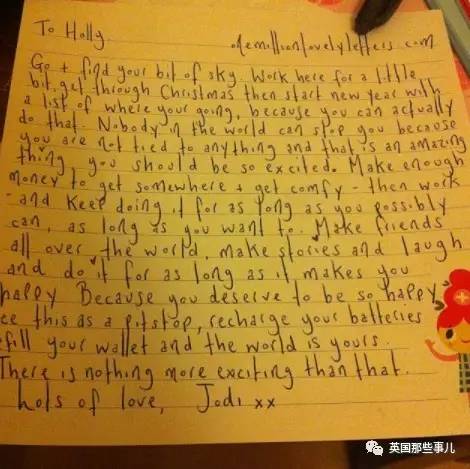 To Holly onemillionlovelyletters.com
Go + find your bit of sky. Work here for a little
bit, get through Christmas then start new year with
a list of where your going, because you can actually
do that. Nobody in the world can stop you because
you are not tied to anything and that is an amazing
thing, you should be so excited. Make enough
money to get somewhere + get comfy - then work
- and keep doing it for as long as you possibly
can, as long as you want to. Make friends
all over the world, make stories and laugh
and do it for as long as it makes you
happy Because you deserve to be so happy
ee this as a pitstop, recharge your batteries
efill your wallet and the world is yours.
There is nothing more exciting than that.
Lots of love, Jodi xx
英国那些事儿